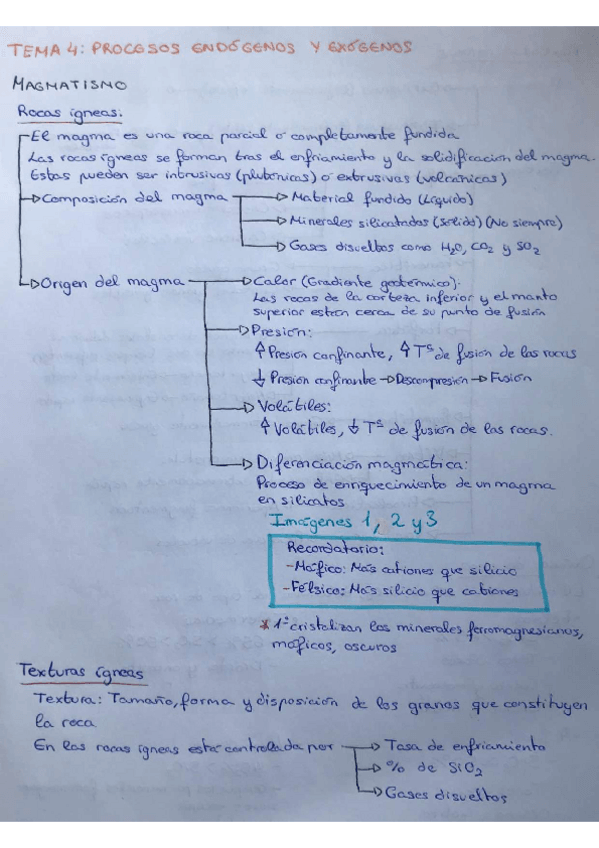 TEMA 4: PROCESOS ENDÓGENOS Y EXÓGENOS
MAGMATISMO
Rocas ígneas:
El magma es una roca parcial o completamente fundida
Las rocas ígneas se forman tras el enfriamiento y la solidificación del magma.
Estas pueden ser intrusivas (plutónicas) o extrusivas (volcánicas)
Composición del magma
Material fundido (Líquido)
Minerales silicatados (Sólido) (No siempre)
Gases disueltos como H₂O, CO₂ y SO₂
Origen del magma
Calor (Gradiente geotérmico):
Las rocas de la corteza inferior y el manto
superior estan cerca de su punto de fusión
Presión:
↑ Presión confinante, ↑ Tª de fusión de las rocas
↓ Presión confinante → Descompresión → Fusión
Volátiles:
↑ Volátiles, ↓ Tª de fusión de las rocas.
Diferenciación magmática:
Proceso de enriquecimiento de un magma
en silicatos
Imágenes 1, 2 y 3
Recordatorio:
- Máfico: Más cationes que silicio
- Félsico: Más silicio que cationes
* 1º cristalizan los minerales ferromagnesianos,
máficos, oscuros
Texturas ígneas
Textura: Tamaño, forma y disposición de los granos que constituyen
la roca
En las rocas ígneas está controlada por
Tasa de enfriamiento
% de SiO₂
Gases disueltos